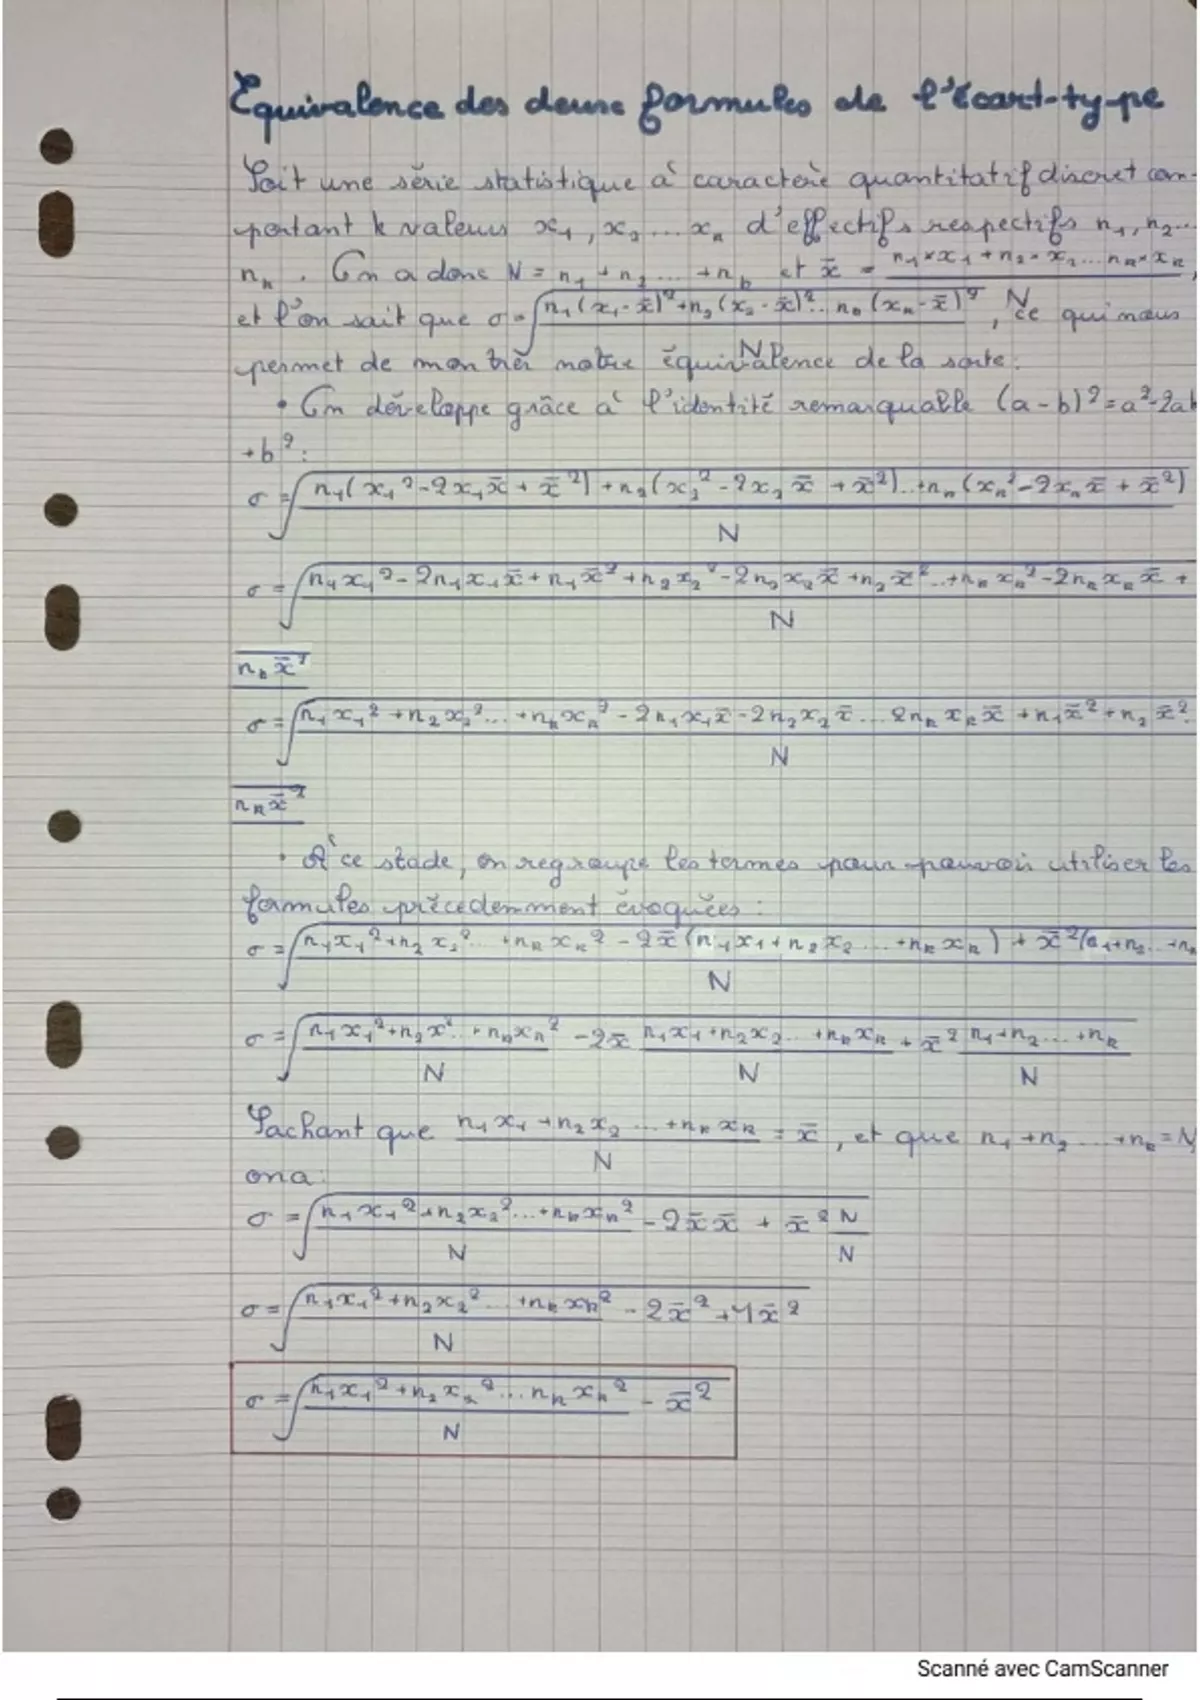 Equivalence des deux formules de l'écart-type
Soit une série statistique à caractère quantitatif discret com-
portant k valeurs x₁, x₂ ... xₖ d'effectifs respectifs n₁, n₂...
nₖ. On a donc N = n₁ + n₂ ... + nₖ et x̄ = (n₁×x₁ + n₂×x₂ ... nₖ×xₖ)/N,
et l'on sait que σ = √((n₁(x₁-x̄)²+n₂(x₂-x̄)²...nₖ(xₖ-x̄)²)/N), ce qui nous
permet de montrer notre équivalence de la sorte.
• On développe grâce à l'identité remarquable (a-b)²=a²-2ab
+b²:
σ = √((n₁(x₁²-2x₁x̄+x̄²)+n₂(x₂²-2x₂x̄+x̄²)...+nₖ(xₖ²-2xₖx̄+x̄²))/N)
σ = √((n₁x₁²-2n₁x₁x̄+n₁x̄²+n₂x₂²-2n₂x₂x̄+n₂x̄²...+nₖxₖ²-2nₖxₖx̄+
nₖx̄²)/N)
σ = √((n₁x₁²+n₂x₂²...+nₖxₖ²-2n₁x₁x̄-2n₂x₂x̄...2nₖxₖx̄+n₁x̄²+n₂x̄²
nₖx̄²)/N)
• A ce stade, on regroupe les termes pour pouvoir utiliser les
formules précédemment évoquées :
σ = √((n₁x₁²+n₂x₂²...+nₖxₖ²-2x̄(n₁x₁+n₂x₂...+nₖxₖ)+x̄²(n₁+n₂...+nₖ)/N)
σ = √((n₁x₁²+n₂x²...+nₖxₖ²)/N - 2x̄ (n₁x₁+n₂x₂...+nₖxₖ)/N + x̄² (n₁+n₂...+nₖ)/N)
Sachant que (n₁x₁+n₂x₂...+nₖxₖ)/N = x̄, et que n₁+n₂...+nₖ=N,
on a:
σ = √((n₁x₁²+n₂x₂²...+nₖxₖ²)/N - 2x̄x̄ + x̄² N/N)
σ = √((n₁x₁²+n₂x₂²...+nₖxₖ²)/N - 2x̄²+1x̄²)
σ = √((n₁x₁²+n₂x₂²...nₖxₖ²)/N - x̄²)
Scanné avec CamScanner